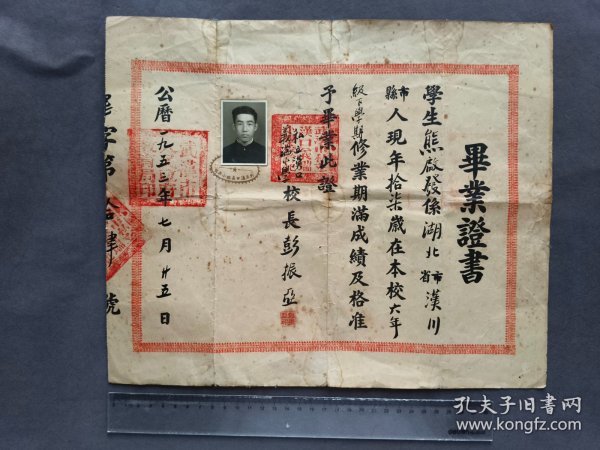 畢業證書
學生熊啟發係湖北省市漢川
縣市人現年拾柒歲在本校六年
級下學期修業期滿成績及格准
予畢業此證
校長彭振亞
公曆一九五三年七月廿五日
字第
號
孔夫子旧书网
www.kongfz.com